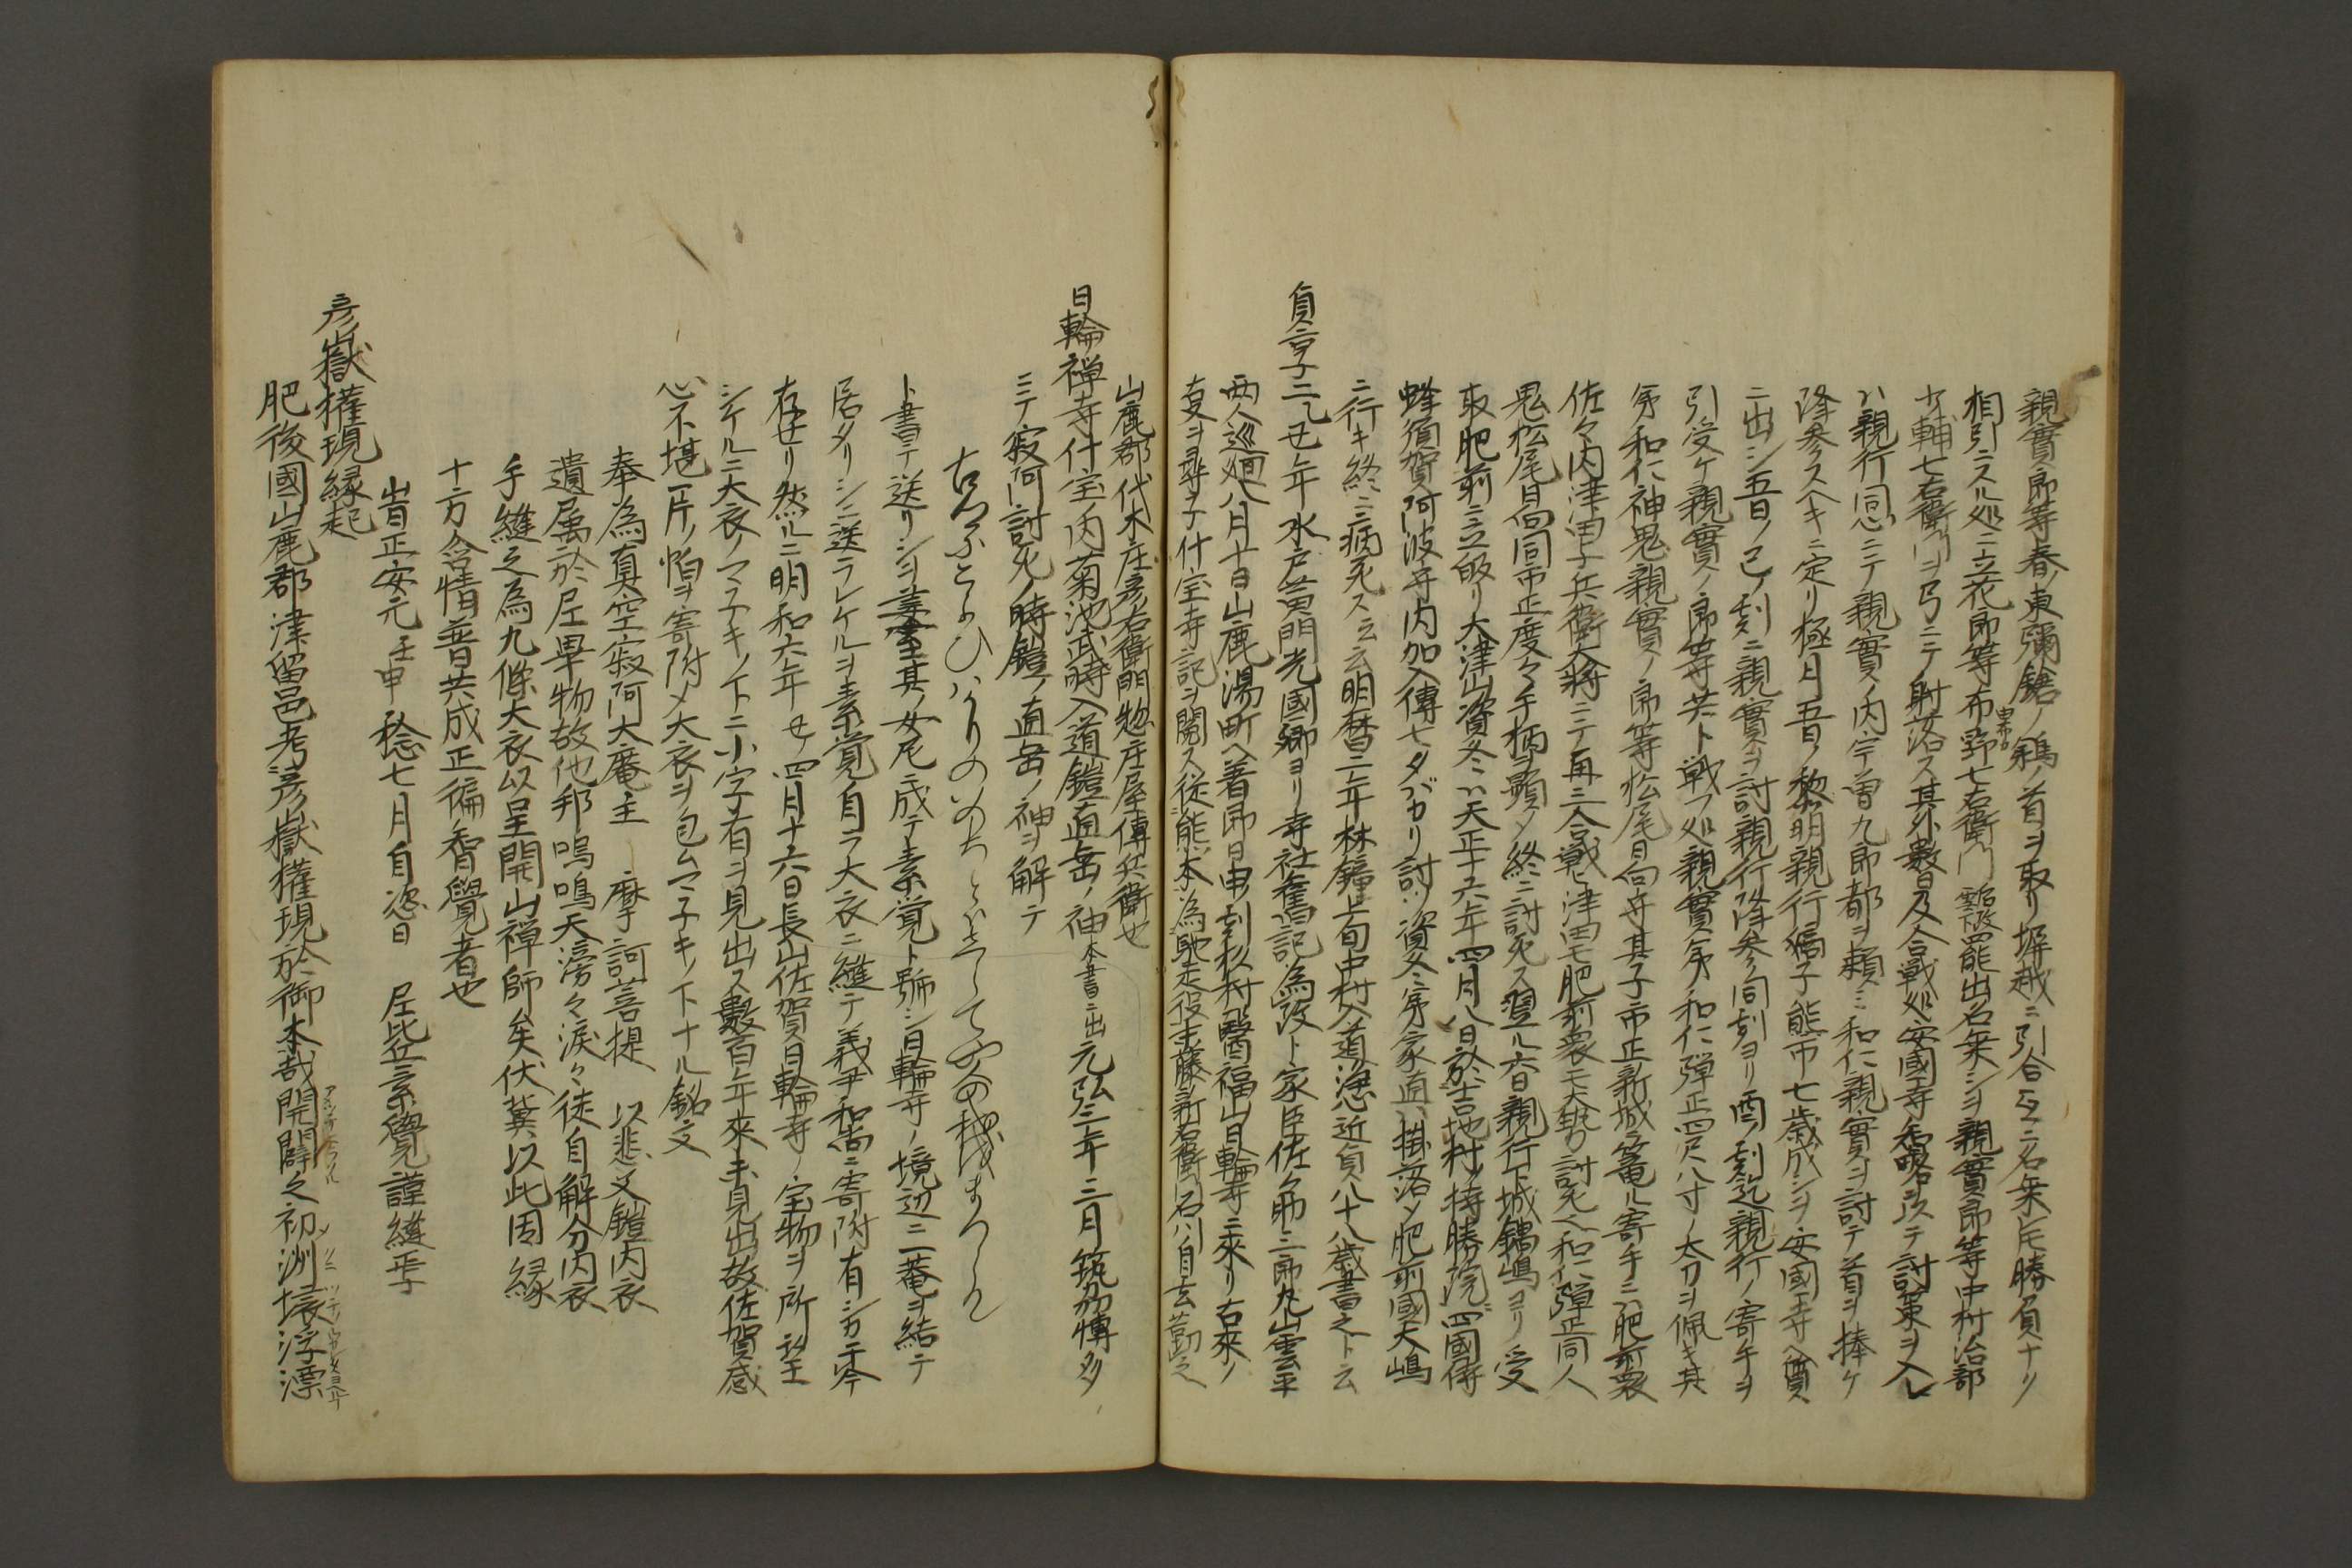 親實郎等春ノ東彌鎗ノ鵜ノ首ヲ取リ塀越ニ引合互ニ名乗圧勝負ナリ
相引ニスル処ニ立花郎等布野七右衛門罷出名乗シヲ親實郎等中村治部
少輔七右衛門ヲ弓ニテ射落ス其外數日及合戦処安國寺智略ヲ以テ計策ヲ入レ
ハ親行同心ニテ親實ノ内宇曽九郎都ヲ頼ミ和仁親實ヲ討テ首ヲ捧ケ
降参スヘキニ定リ極月五日ノ黎明親行嫡子熊市七歳成シヲ安國寺ヘ質
ニ出シ五日ノ已ノ刻ニ親實ヲ討親行降参同刻ヨリ酉ノ刻迄親行ノ寄手ヲ
引受ケ親實ノ郎等共ト戦フ処親實弟ノ和仁弾正四尺八寸ノ太刀ヲ佩キ其
弟和仁神鬼親實ノ郎等松尾日向守其子市正新城ニ篭ル寄手ニハ肥前衆
佐々内津田子兵衛大将ニテ再三合戦津田モ肥前衆モ大勢討死ヘ和仁弾正同人
鬼松尾日向同市正度々手柄ヲ顕シ終ニ討死ス翌ル六日親行下城鍋嶋ヨリノ受
取肥前ニ立皈リ大津山資冬ハ天正十六年四月八日於吉地村ノ持勝院ニ四國侍
蜂須賀阿波守内加入傳七タバカリ討ツ資冬弟家直ハ掛落シ肥前國大嶋
ニ行キ終ニ病死ス云云明暦二年林鐘上旬中村入道浄心近負八十八歳書之ト云云
貞享二乙丑年水戸黄門光國卿ヨリ寺社舊記為改ト家臣佐々助三郎丸山雲平
両人巡廻八月十日山鹿湯町ヘ着即日申ノ刻杉村醫福山日輪寺ニ來リ右來ノ
右叓ヲ尋子什宝寺記ヲ閲ス従熊本為馳走役圭藤新右衛門石川自玄茢之
山鹿郡代木庄彦右衛門惣庄屋傳兵衛也
日輪禅寺什宝内菊池武時入道鎧直垂ノ袖本書ニ出元弘三年三月筑前博多
ニテ寂阿討死ノ時鎧ノ直垂ノ袖ヲ解テ
古さとにこよひはかりのいのちともしらてや人の我をまつらん
ト書テ送リシヲ妻室其ノ女尼ニ成テ素覚ト號シ日輪寺ノ境辺ニ一菴ヲ結テ
居タリシニ送ラレケルヲ素覚自ラ大衣ニ縫テ義尹和尚ニ寄附有シカ于今
存セリ然ルニ明和六年丑ノ四月十六日長山佐賀日輪寺ノ宝物ヲ所望
シケルニ大衣ノマチキノ下ニ小字有ヲ見出ス數百年來未見出故佐賀感
心不堪一片ノ怕ヲ寄附〆大衣ヲ包ムマチキノ下ナル銘文
奉為真空寂阿大庵主　摩訶菩提　以悲父鎧内衣
遺属於尼畢物故他邦嗚鳴天滂々涙々徒自解分内衣
手縫之為九條大衣以呈開山禅師矣伏冀以此因縁
十方含情普共成正徧智覺者也
旹正安元壬申稔七月自恣日　尼比丘素覺謹縫焉
彦嶽權現縁起
肥後國山鹿郡津留邑考彦嶽權現於御本哉開闢之初洲壌浮漂